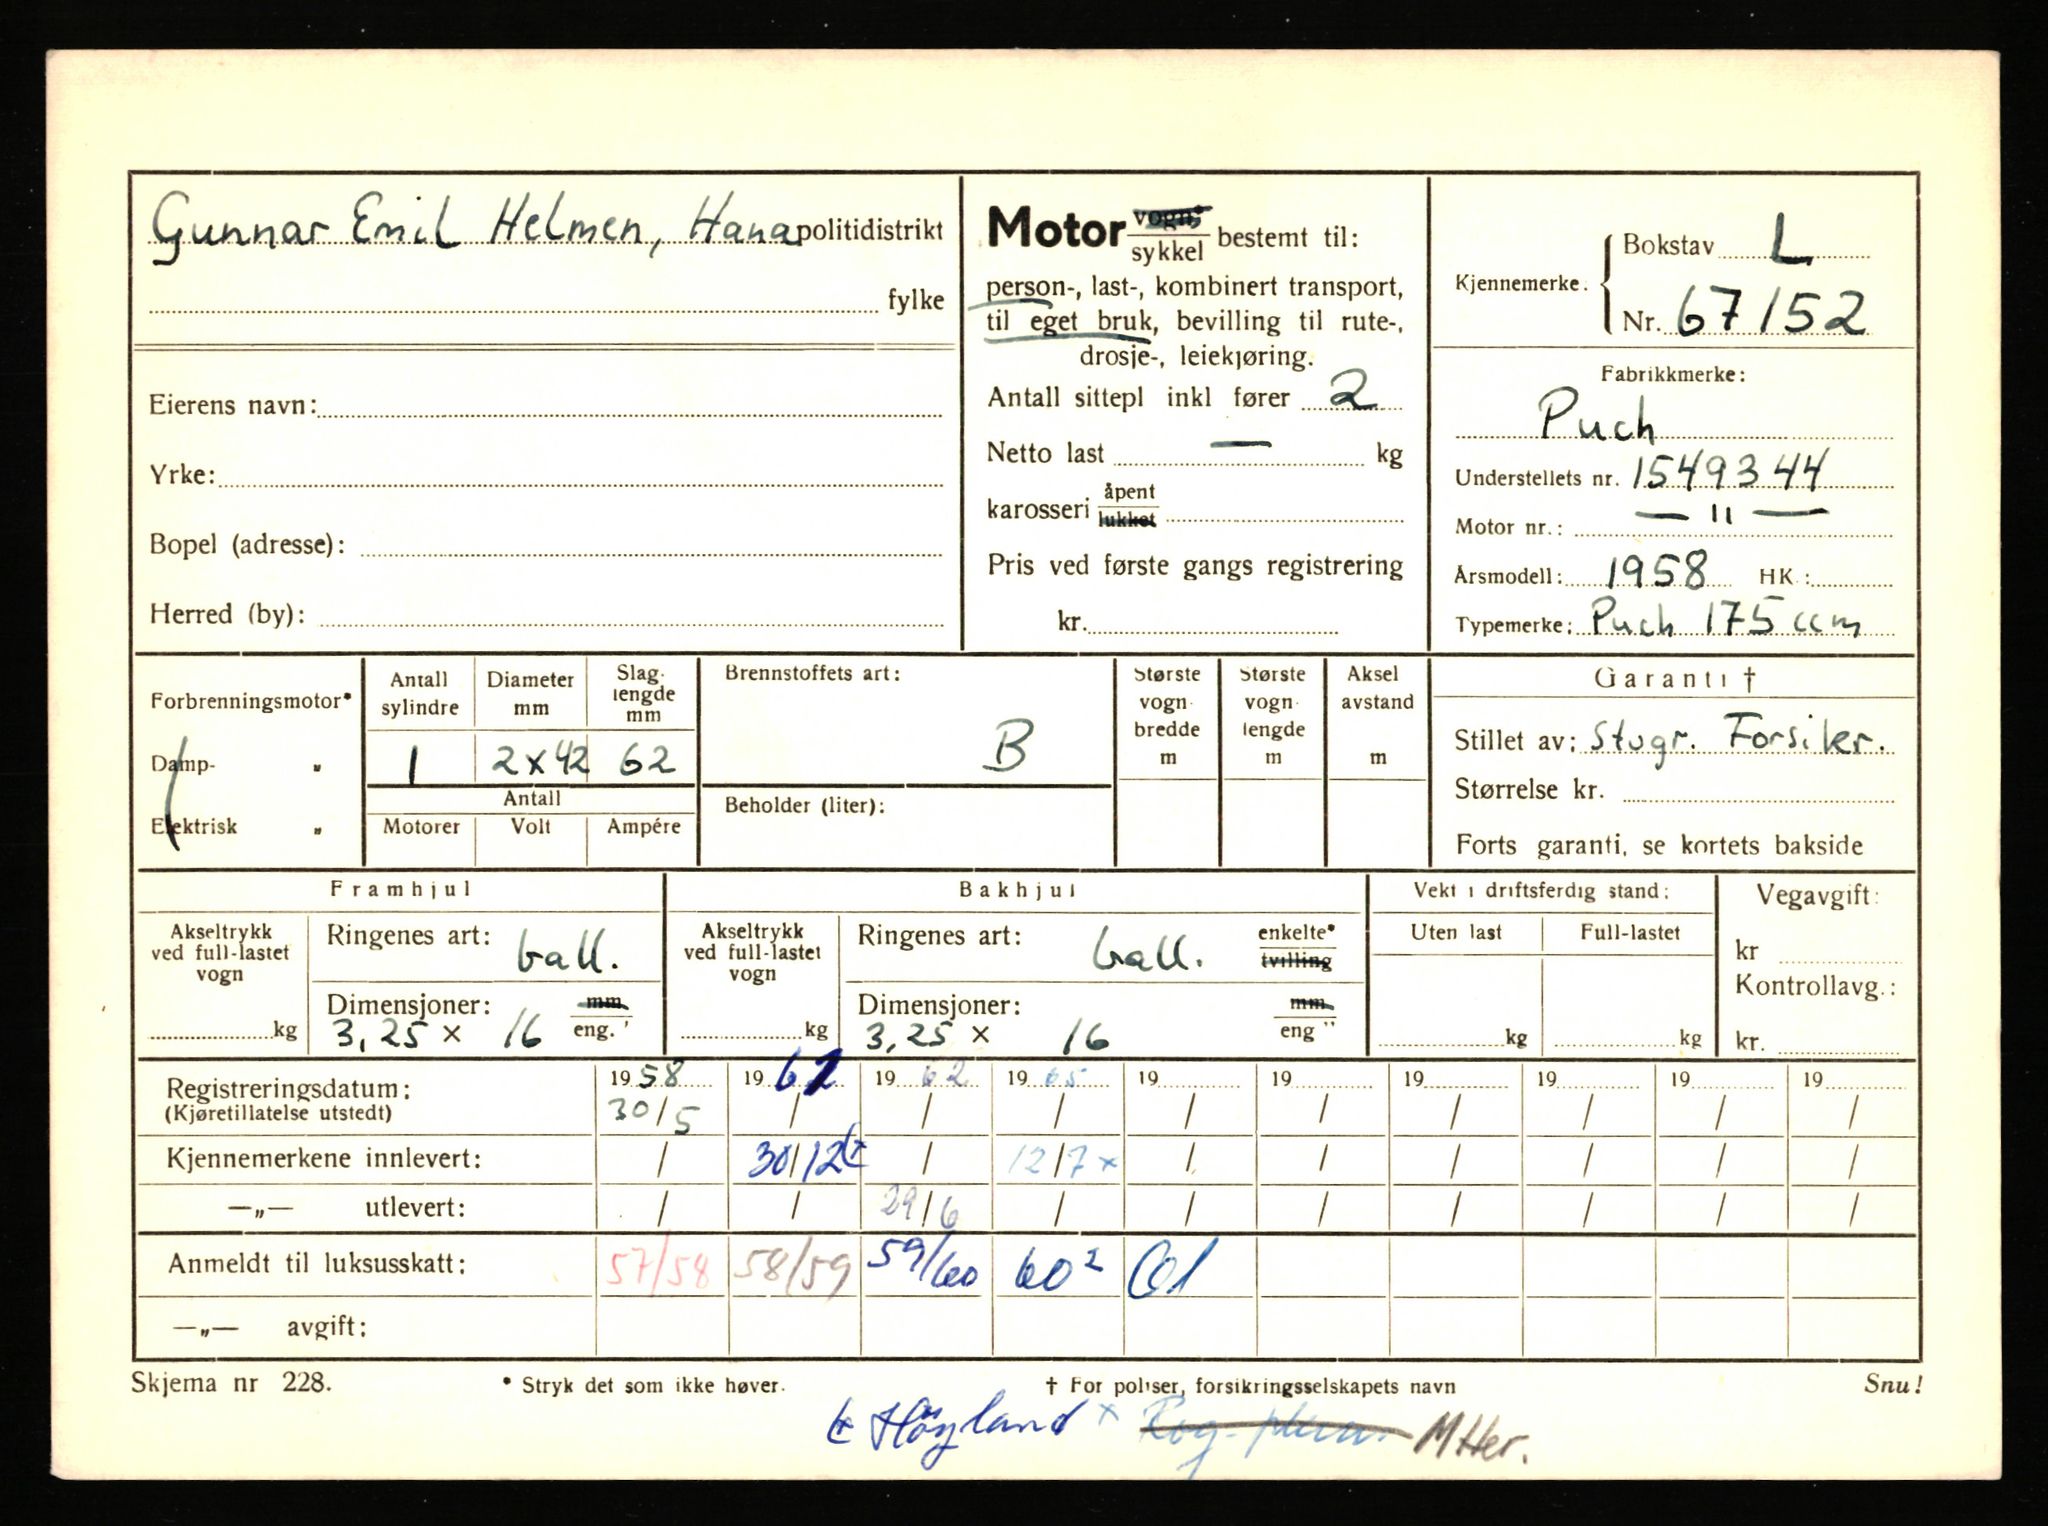 Gunnar Emil Helmen, Hana politidistrikt
fylke
Eierens navn:
Yrke:
Bopel (adresse):
Herred (by):
Motor vogn,* sykkel bestemt til:
person-, last-, kombinert transport,
til eget bruk, bevilling til rute-,
drosje-, leiekjøring.
Antall sittepl inkl fører 2
Netto last — kg
karosseri åpent lukket
Pris ved første gangs registrering
kr.
Kjennemerke.
Bokstav L
Nr. 67152
Fabrikkmerke:
Puch
Understellets nr. 1549344
Motor nr.: — " —
Årsmodell: 1958 HK.:
Typemerke: Puch 175 ccm
Forbrenningsmotor*
Damp- "
Elektrisk "
Antall sylindre
1
Diameter mm
2 x 42
Slag-lengde mm
62
Antall
Motorer Volt Ampére
Brennstoffets art:
B
Beholder (liter):
Største vogn-bredde m
Største vogn-lengde m
Aksel avstand m
Garanti †
Stillet av: Stvgr. Forsikr.
Størrelse kr.
Forts garanti, se kortets bakside
Framhjul
Akseltrykk ved full-lastet vogn
kg
Ringenes art: ball.
Dimensjoner: mm
3,25 x 16 eng."
Bakhjul
Akseltrykk ved full-lastet vogn
kg
Ringenes art: ball. enkelte* tvilling
Dimensjoner: mm
3,25 x 16 eng "
Vekt i driftsferdig stand:
Uten last Full-lastet
kg kg
Vegavgift:
kr
Kontrollavg.:
kr.
Registreringsdatum: 19 58 19 19 62 19 65 19 19 19 19 19 19
(Kjøretillatelse utstedt) 30/5 / / / / / / / / /
Kjennemerkene innlevert: / 30/12 / 12/7 x / / / / / /
—„— utlevert: / / 29/6 / / / / / / /
Anmeldt til luksusskatt: 57/58 58/59 59/60 60² 61
—„— avgift:
Skjema nr 228. * Stryk det som ikke høver. † For poliser, forsikringsselskapets navn Snu!
Høyland x